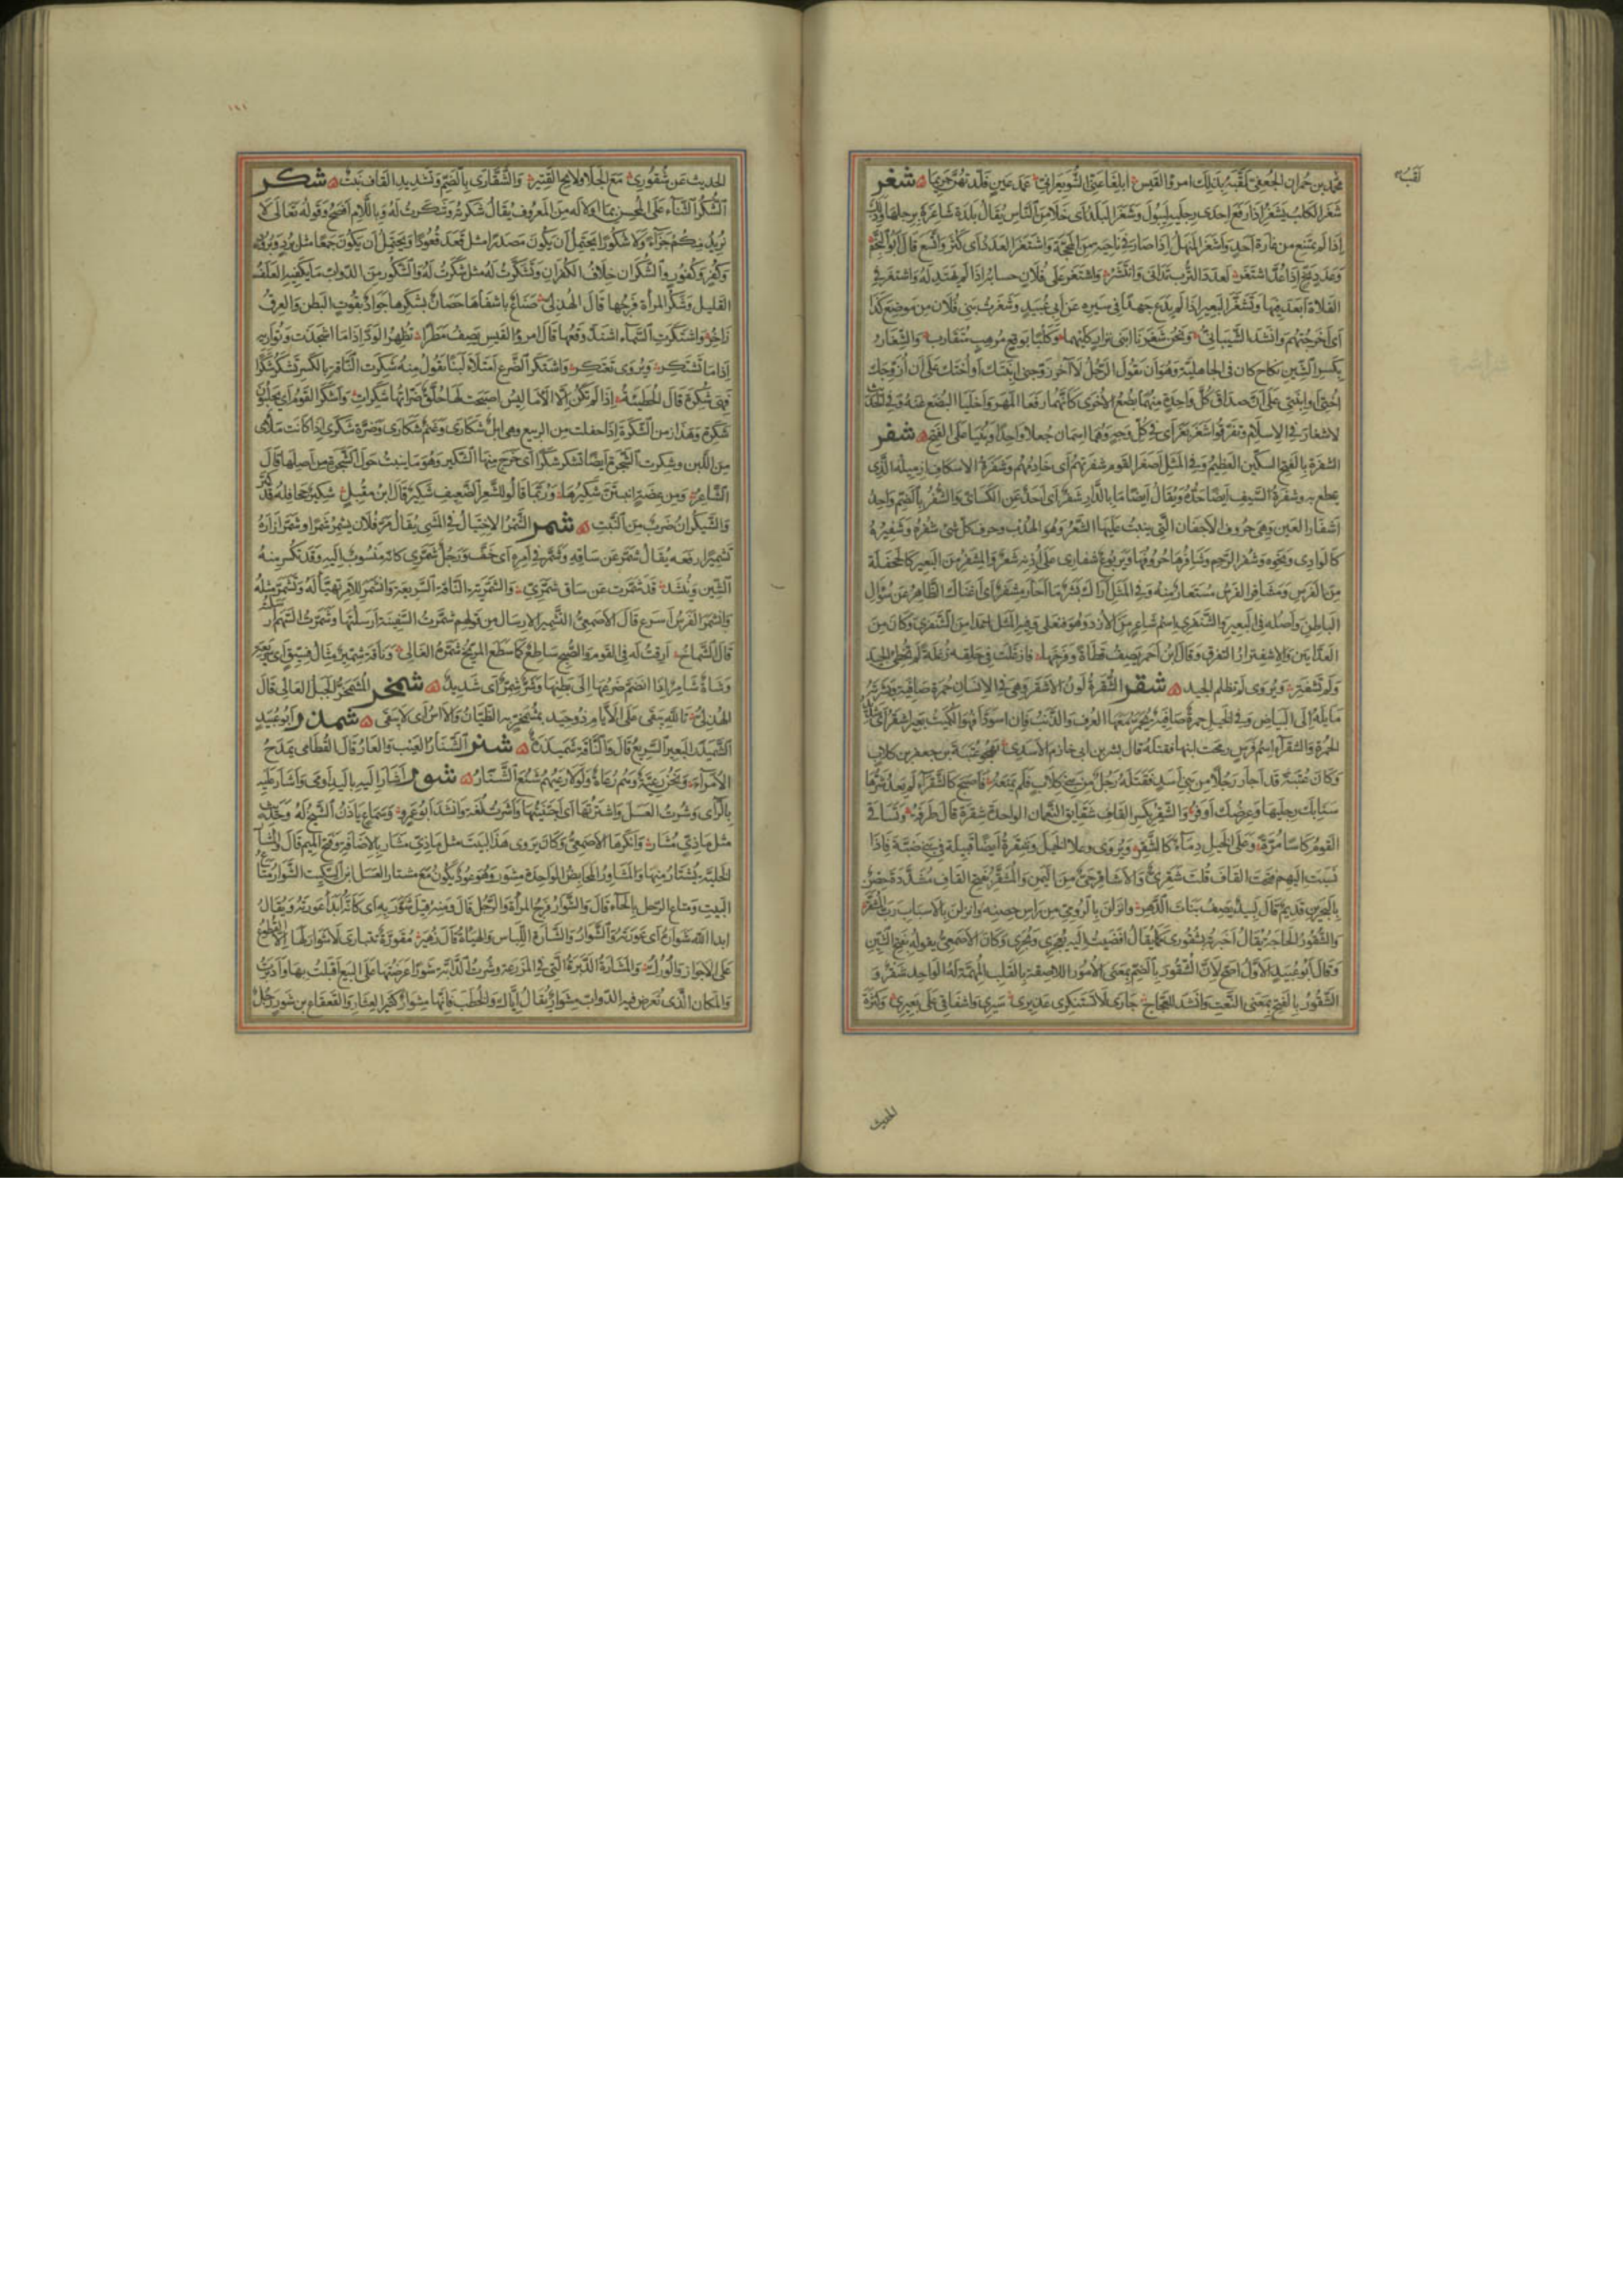 لقبه
محمد بن حمران الجعفى لقبه بذلك امرؤ القيس ابلغا عنى الشويعر انى عمد عين قلدتهن حريما شغر
شغر الكلب يشغر اذا رفع احدى رجليه ليبول وشغر البلد اى خلا من الناس يقال بلدة شاغرة برجلها وذلك
اذا لم يمتنع من غارة احد واشغر المنهل اذا صار فى ناحية من المحجة واشتغر العدد اى كثر واتسع قال ابو النجم
وعدد بخ اذا عد اشتغر لعدد الترب تدانى وانتشر واشتغر على فلان حسابه اذا لم يهتد له واشتغر فى
الفلاة ابعد فيها وتشغر البعير اذا لم يدع جهدا فى سيره عن ابى عبيد وشغرت بنى فلان من موضع كذا
اى اخرجتهم وانشد الشيبانى ونحن شغرنا ابنى نزار كليهما وكلبا بوقع مرهب متقارب والشغار
بكسر الشين نكاح كان فى الجاهلية وهو ان يقول الرجل لآخر زوجنى ابنتك او اختك على ان ازوجك
اختى او ابنتى على ان صداق كل واحدة منهما بضع الاخرى كانهما رفعا المهر واخليا البضع عنه وفى الحديث
لا شغار فى الاسلام وتفرقوا شغر بغر اى فى كل وجه وهما اسمان جعلا واحدا وبنيا على الفتح شفر
الشفرة بالفتح السكين العظيم وفى المثل اصغر القوم شفرتهم اى خادمهم وشفرة الاسكاف ازميله الذى
يقطع به وشفرة السيف ايضا حده ويقال ايضا ما بالدار شفر اى احد عن الكسائى والشفر بالضم واحد
اشفار العين وهى حروف الاجفان التى ينبت عليها الشعر وهو الهدب وحرف كل شئ شفره وشفيره
كالوادى ونحوه وشفر الرحم وشافرها حروفها ويربوع شفارى على اذنه شعر والمشفر من البعير كالجحفلة
من الفرس ومشافر الفرس مستعارة منه وفى المثل اراك بشر ما احار مشفر اى اغناك الظاهر عن سؤال
الباطن واصله فى البعير والشنفرى اسم شاعر من الازد وهو فنعلى وفى المثل اعدا من الشنفرى وكان من
العدائين والاشفترار التفرق وقال ابن احمر يصف قطاة وفرخها فازغلت فى حلقه زغلة لم تخطئ الجيد
ولم تشفتر ويروى لم تظلم الجيد شقر الشقرة لون الاشقر وهى فى الانسان حمرة صافية وبشرته
مايلة الى البياض وفى الخيل حمرة صافية يحمر معها العرف والذنب فان اسودا فهو الكميت وبعير اشقر اى شديد
الحمرة والشقراء اسم فرس رمحت ابنها فقتلته قال بشر بن ابى خازم الاسدى يهجو عتبة بن جعفر بن كلاب
وكان عتبة قد اجار رجلا من بنى اسد فقتله رجل من بنى كلاب فلم يمنعه فاصبح كالشقراء لم يعد شرها
سنابك رجليها وعرضك اوفر والشقر بكسر القاف شقايق النعمان الواحدة شقرة قال طرفة وتساقى
القوم كاسا مرة وعلى الخيل دماء كالشقر ويروى وعلا الخيل وشقرة ايضا قبيلة فى بنى ضبة فاذا
نسبت اليهم فتحت القاف قلت شقرى والاشاقر حى من اليمن والمشقر بفتح القاف مشددة حصن
بالبحرين قديم قال لبيد يصف بنات الدهر وانزلن بالرومى من راس حصنه وانزلن بالاسباب رب المشقر
والشقور الحاجة يقال اخبرته بشقورى كما يقال افضيت اليه بعجرى وبجرى وكان الاصمعى يقوله بفتح الشين
وقال ابو عبيد الاول اصح لان الشقور بالضم بمعنى الامور اللاصقة بالقلب المهمة له الواحد شقر و
الشقور بالفتح بمعنى النعت وانشد للعجاج جارى لا تستنكرى عذيرى سيرى واشفاقى على بعيرى وكثرة
الحديث
١٩١
الحديث عن شقورى مع الجلا ولايح القتير والشقارى بالضم وتشديد القاف نبت شكر
الشكر الثناء على المحسن بما اولاكه من المعروف يقال شكرته وشكرت له وباللام افصح وقوله تعالى لا
نريد منكم جزاء ولا شكورا يحتمل ان يكون مصدرا مثل قعد قعودا ويحتمل ان يكون جمعا مثل برد وبرود
وكفر وكفور والشكران خلاف الكفران وتشكرت له مثل شكرت له والشكور من الدواب ما يكفيه العلف
القليل وشكر المراة فرجها قال الهذلى صناع باشفاها حصان بشكرها جواد بقوت البطن والعرق
زاخر واشتكرت السماء اشتد وقعها قال امرؤ القيس يصف مطرا تظهر الود اذا ما اشجذت وتواريه
اذا ما تشتكر ويروى تعتكر واشتكر الضرع امتلا لبنا تقول منه شكرت الناقة بالكسر تشكر شكرا
فهى شكرة قال الحطيئة اذا لم تكن الا الاماليس اصبحت لها حلق ضراتها شكرات واشكر القوم اى يحلبون
شكرة وهذا زمن الشكرة اذا حفلت من الربيع وهى ابل شكارى وغنم شكارى وضرة شكرى اذا كانت ملأى
من اللبن وشكرت الشجرة ايضا تشكر شكرا اى خرج منها الشكير وهو ما ينبت حول الشجرة من اصلها قال
الشاعر ومن عضة ما ينبتن شكيرها وربما قالوا للشعر الضعيف شكير قال ابن مقبل شكير جحافله قد كتن
والشيكران ضرب من النبت شمر الشمر الاختيال فى المشى يقال مر فلان يشمر شمرا وشمر ازاره
تشميرا رفعه يقال شمر عن ساقه وشمر فى امره اى خف ورجل شمرى كانه منسوب اليه وقد تكسر منه
الشين وينشد قد شمرت عن ساق شمرى والشمرية الناقة السريعة وانشمر للامر تهيا له وتشمر مثله
وانشمر الفرس اسرع قال الاصمعى التشمير الارسال من قولهم شمرت السفينة ارسلتها وشمرت السهم ارسلته
قال الشماخ ارقت له فى القوم والصبح ساطع كما سطع المريخ شمره الغالى وناقة شمير مثال فسيق اى سريعة
وشاة شامر اذا انضم ضرعها الى بطنها وشر شمر اى شديد شمخر المشمخر الجبل العالى قال
الهذلى تالله يبقى على الايام ذو حيد بمشمخر به الظيان والآس اى لا يبقى شمذر ابو عبيد
الشميذر البعير السريع قال والناقة شميذرة شنر الشنار العيب والعار قال القطامى يمدح
الامراء ونحن رعية وهم رعاة ولولا رعيهم شنع الشنار شور اشار اليه باليد اومى واشار عليه
بالراى وشرت العسل واشترتها اى اجتنيتها واشرت لغة وانشد ابو عمرو وسماع ياذن الشيخ له وحديث
مثل ماذى مشار وانكرها الاصمعى وكان يروى هذا البيت مثل ماذى مشار بالاضافة وفتح الميم قال والمشار
الخلية يشتار منها والمشاور المحابض الواحدة مشور وهو عود يكون مع مشتار العسل ابن السكيت الشوار متاع
البيت ومتاع الرحل بالحاء قال والشوار فرج المراة والرجل قال ومنه قيل شور به اى كانه ابدا عورته ويقال
ابدا الله شواره اى عورته والشوار والشارة اللباس والهيئة قال زهير مقورة تتبارى لا شوار لها الا القطوع
على الاجواز والورك والمشارة الدبرة التى فى المزرعة وشرت الدابة شورا عرضتها على البيع اقبلت بها وادبرت
والمكان الذى تعرض فيه الدواب مشوار يقال اياك والخطب فانها مشوار كثير العثار والقعقاع بن شور رجل